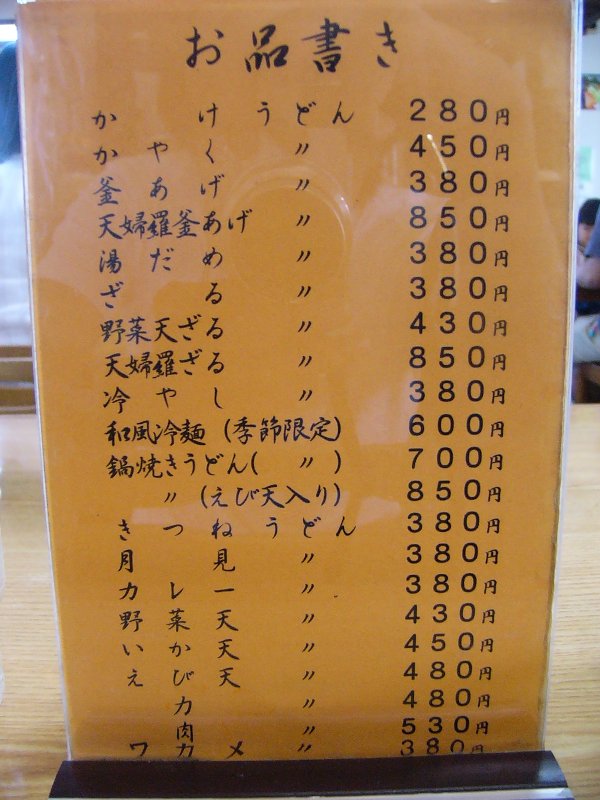 お品書き
かけうどん 280円
かやく 〃 450円
釜あげ 〃 380円
天婦羅釜あげ 〃 850円
湯だめ 〃 380円
ざる 〃 380円
野菜天ざる 〃 430円
天婦羅ざる 〃 850円
冷やし 〃 380円
和風冷麺 (季節限定) 600円
鍋焼きうどん( 〃 ) 700円
〃 (えび天入り) 850円
きつねうどん 380円
月見 〃 380円
カレー 〃 380円
野菜天 〃 430円
いか天 〃 450円
えび天 〃 480円
力 〃 480円
肉 〃 530円
ワカメ 〃 380円